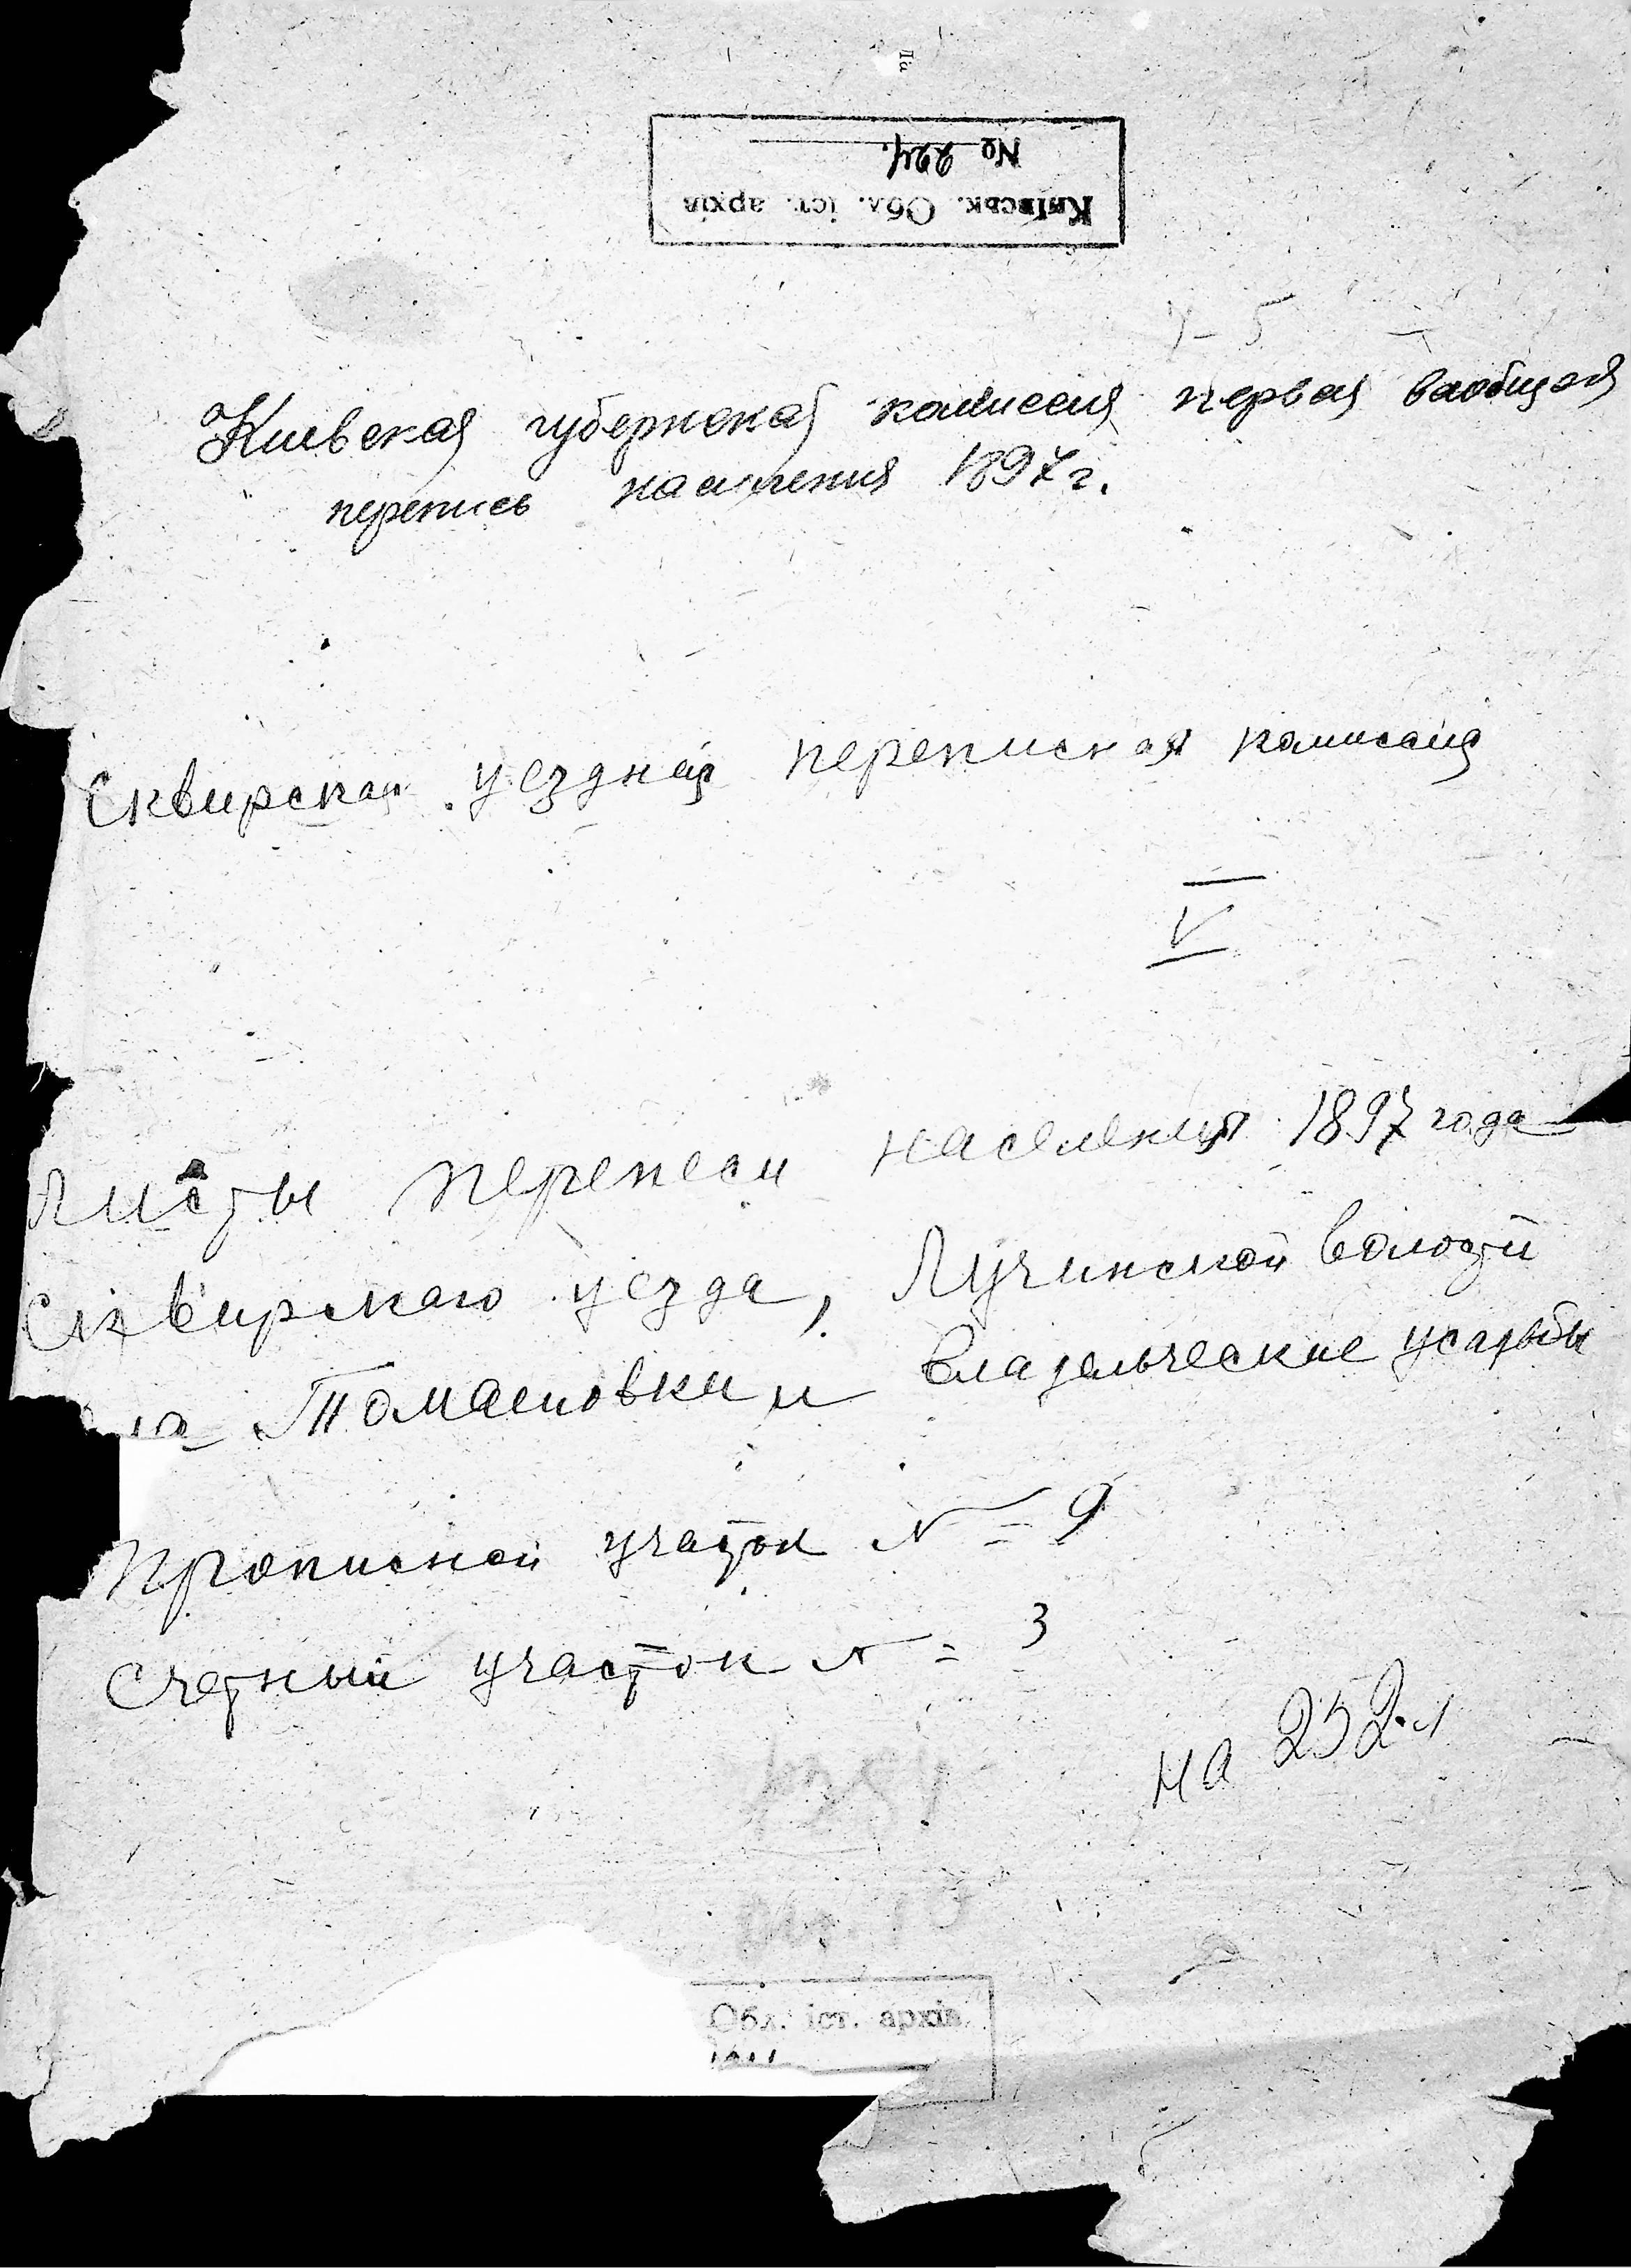 № 224.
Київськ. Обл. іст. архів
Киевская губернская комиссия первая ваобщая
перепись населения 1897 г.
Сквирская уездная переписная комиссия
V
Листы переписи населения 1897 года
Сквирского уезда, Лучинской волости
Томашовки и владельческие усадьбы
Прописной участок № 9
Счетный участок № 3
на 252 л
Обл. іст. архів